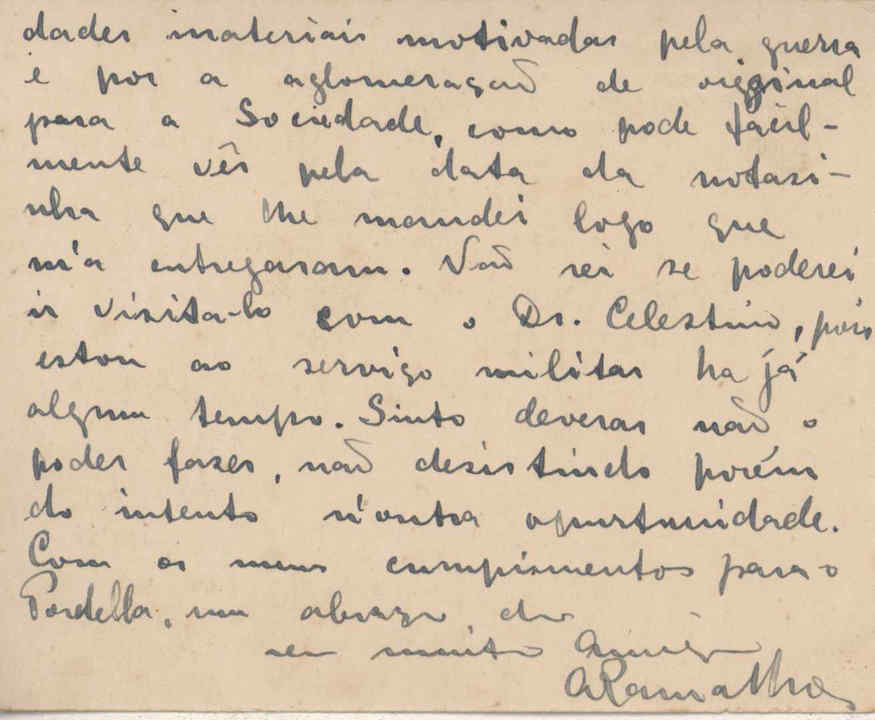 dades materiais motivadas pela guerra
e por a aglomeração de original
para a Sociedade, como pode fàcil-
mente vêr pela data da notasi-
nha que lhe mandei logo que
m'a entregaram. Não sei se poderei
ir visita-lo com o Dr. Celestino, pois
estou ao serviço militar ha já
algum tempo. Sinto deveras não o
poder fazer, não desistindo porém
do intento n'outra oportunidade.
Com os meus cumprimentos para o
Portella, um abraço do
seu muito Amigo
ARamalho